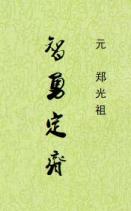 元 郑光祖
智勇定齐